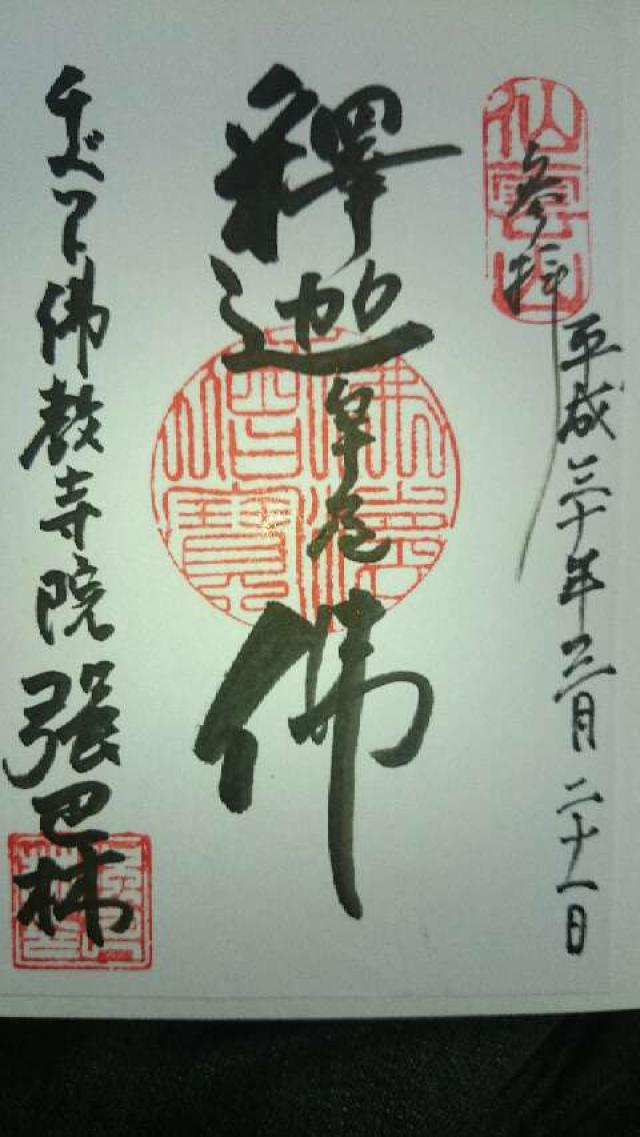 仙雲山
參拝
平成三十年三月二十一日
釋迦牟尼佛
佛法僧寶
チベット佛教寺院 強巴林